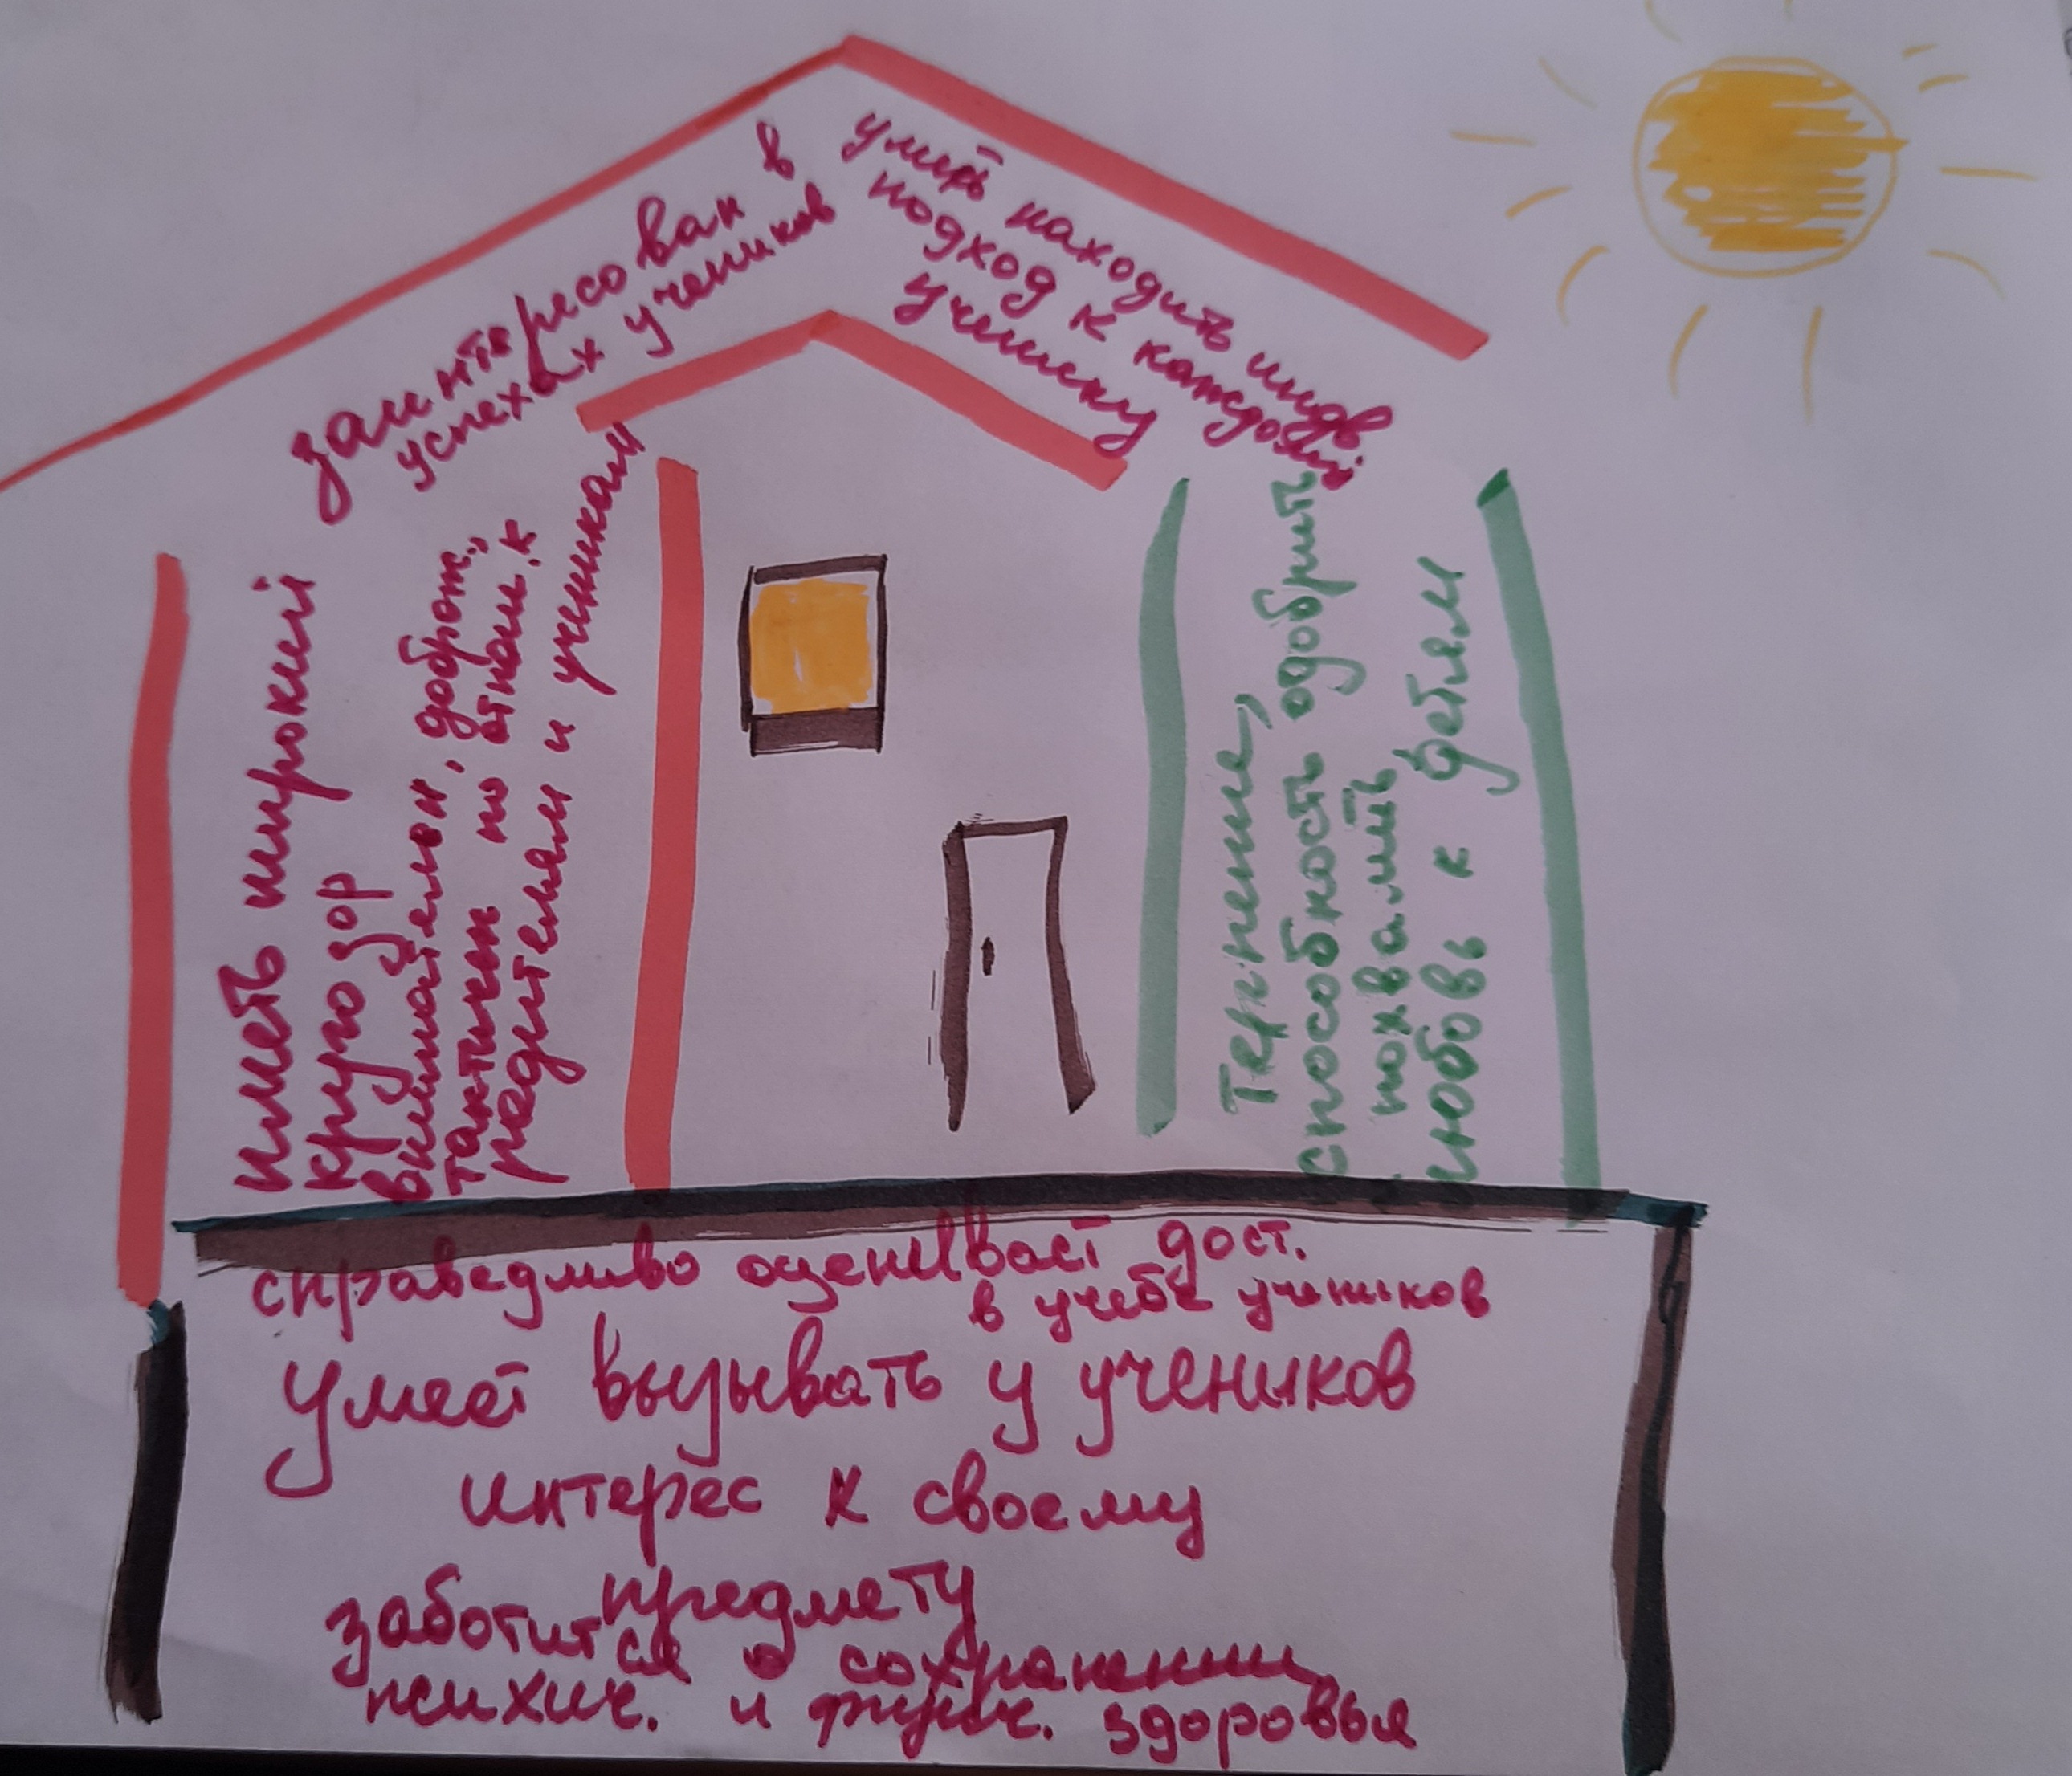 заинтересован в
успехах учеников
уметь находить индв
подход к каждому
ученику
иметь широкий
кругозор
внимателен, доброт.,
тактичен по отнош. к
родителям и ученикам
Терпение,
способность одобрить
похвалить
любовь к детям
справедливо оценивает дост.
в учебе учеников
Умеет вызывать у учеников
интерес к своему
предмету
заботится о сохранении
психич. и физич. здоровья